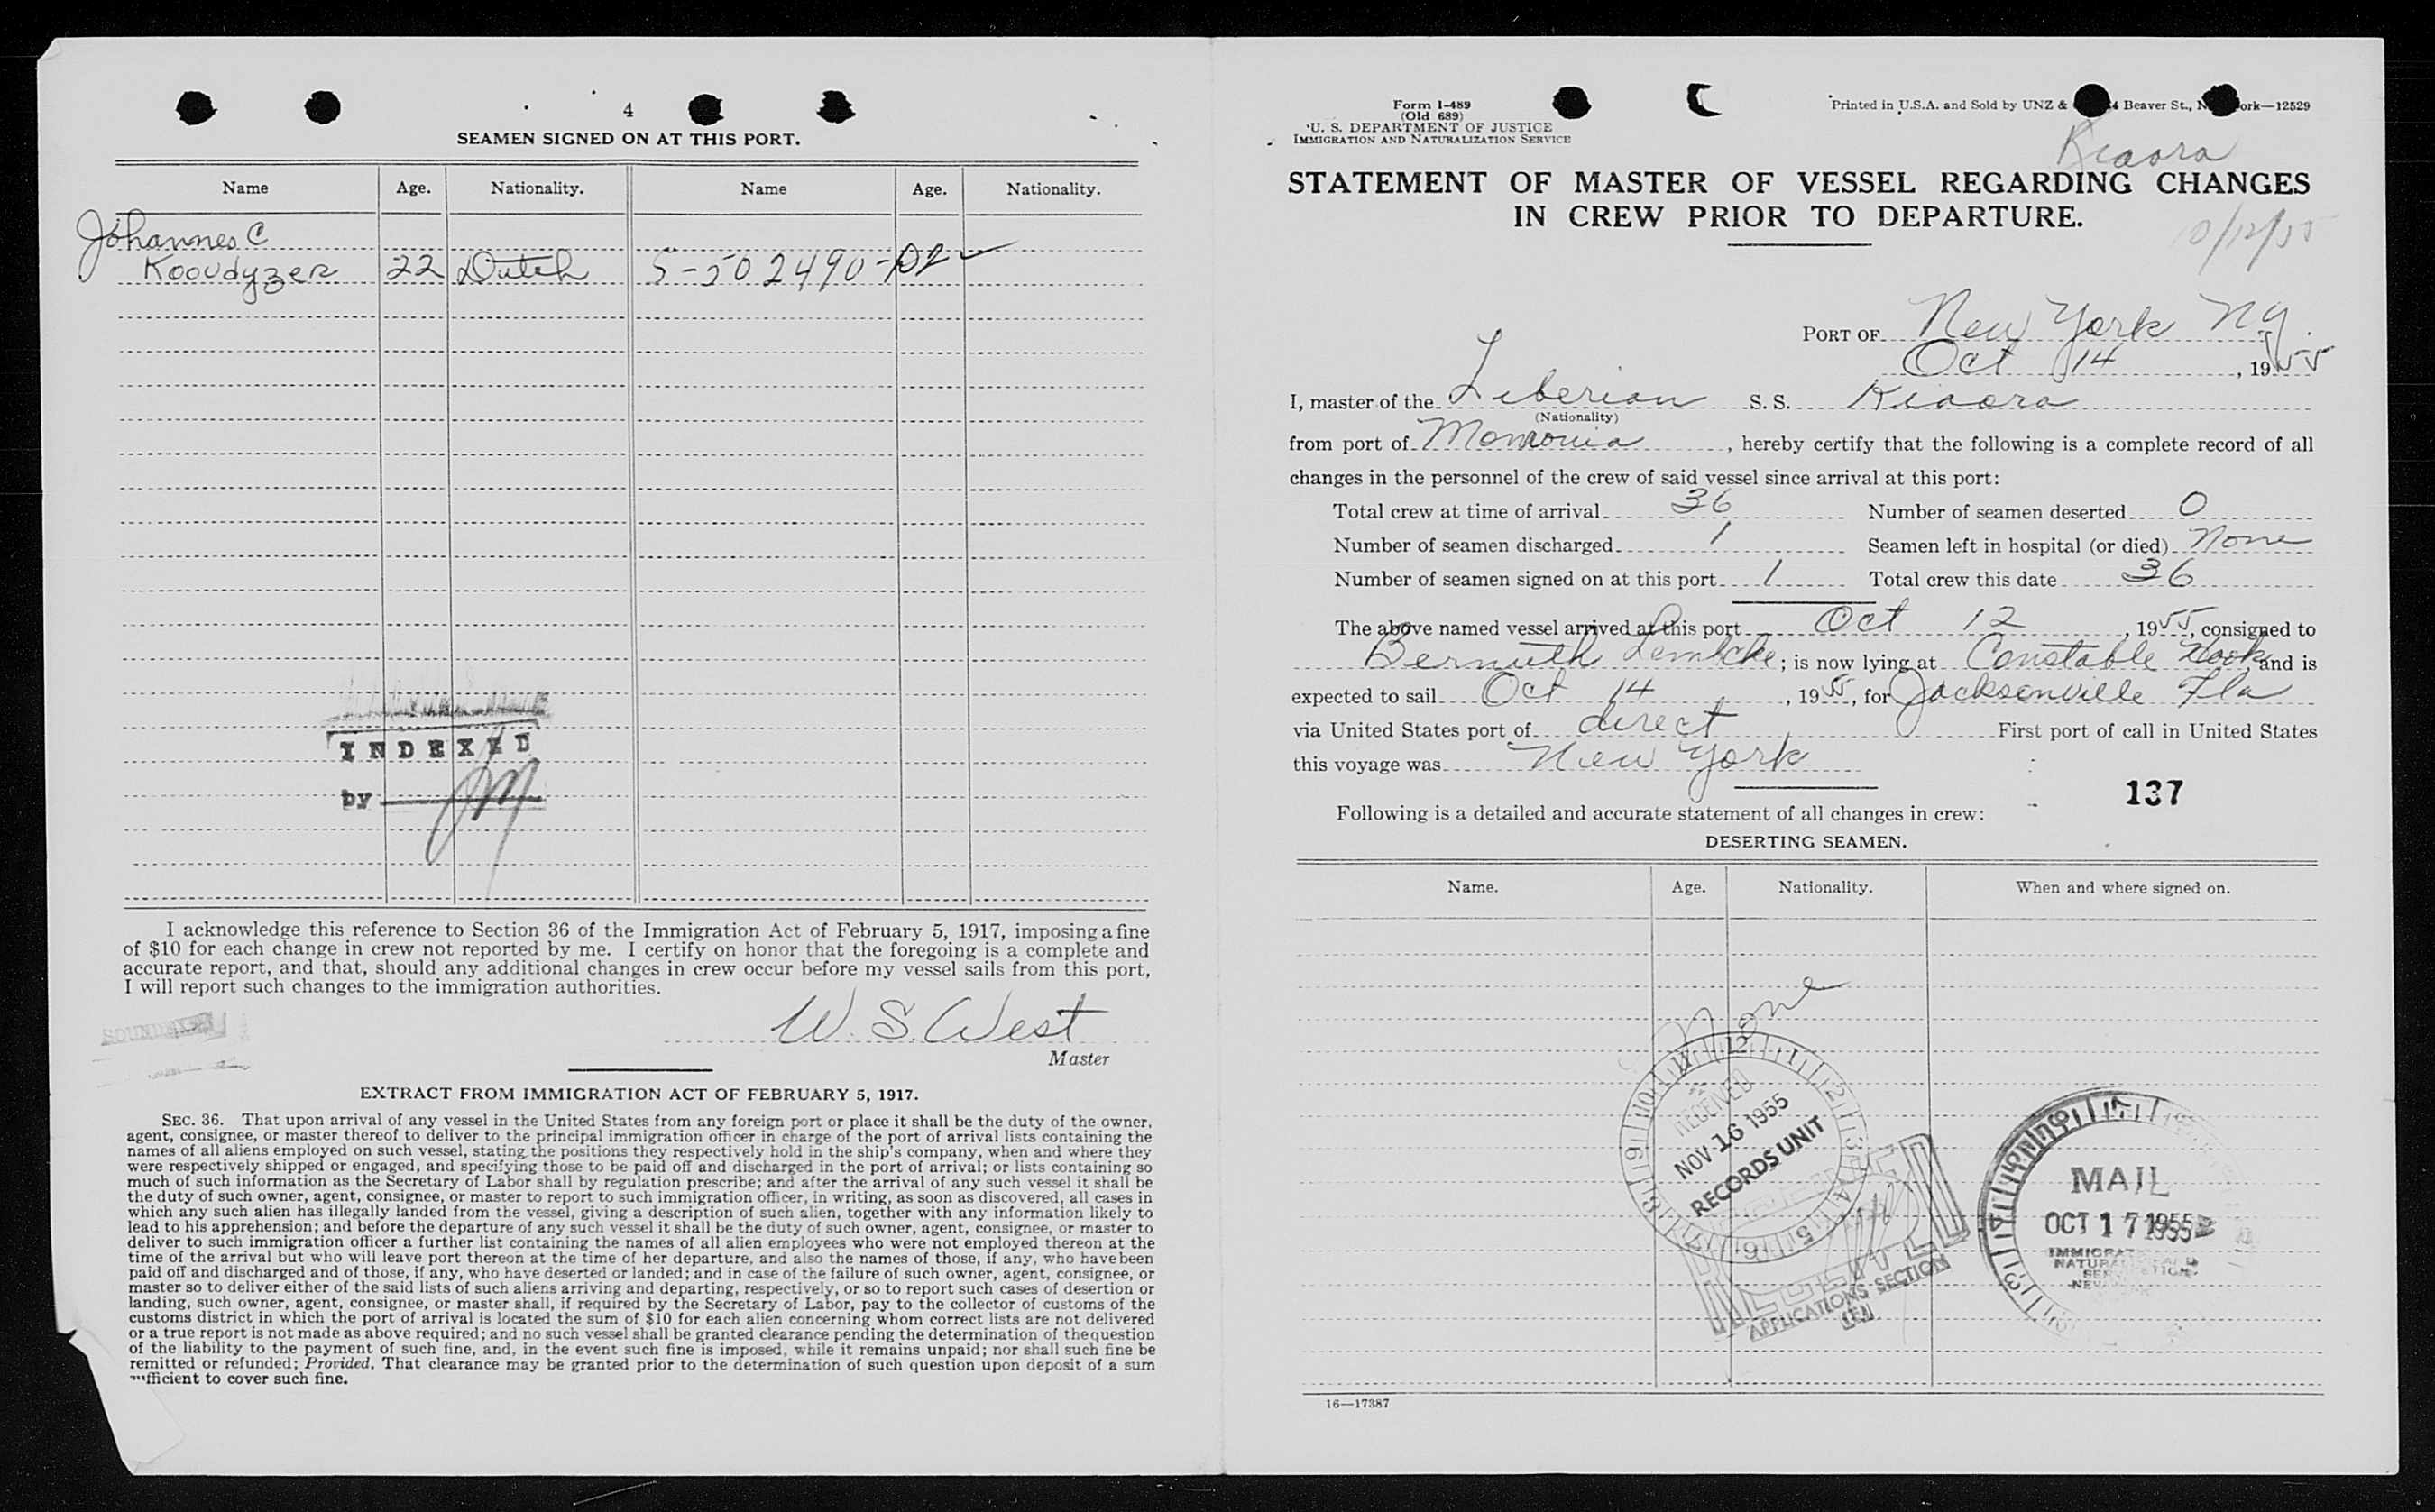 4
SEAMEN SIGNED ON AT THIS PORT.
Name Age. Nationality. Name Age. Nationality.
Johannes C
Kooudyzer 22 Dutch S-502490-D2 ✓
INDEXED
by
I acknowledge this reference to Section 36 of the Immigration Act of February 5, 1917, imposing a fine
of $10 for each change in crew not reported by me. I certify on honor that the foregoing is a complete and
accurate report, and that, should any additional changes in crew occur before my vessel sails from this port,
I will report such changes to the immigration authorities.
W. S. West
Master
EXTRACT FROM IMMIGRATION ACT OF FEBRUARY 5, 1917.
SEC. 36. That upon arrival of any vessel in the United States from any foreign port or place it shall be the duty of the owner,
agent, consignee, or master thereof to deliver to the principal immigration officer in charge of the port of arrival lists containing the
names of all aliens employed on such vessel, stating the positions they respectively hold in the ship's company, when and where they
were respectively shipped or engaged, and specifying those to be paid off and discharged in the port of arrival; or lists containing so
much of such information as the Secretary of Labor shall by regulation prescribe; and after the arrival of any such vessel it shall be
the duty of such owner, agent, consignee, or master to report to such immigration officer, in writing, as soon as discovered, all cases in
which any such alien has illegally landed from the vessel, giving a description of such alien, together with any information likely to
lead to his apprehension; and before the departure of any such vessel it shall be the duty of such owner, agent, consignee, or master to
deliver to such immigration officer a further list containing the names of all alien employees who were not employed thereon at the
time of the arrival but who will leave port thereon at the time of her departure, and also the names of those, if any, who have been
paid off and discharged and of those, if any, who have deserted or landed; and in case of the failure of such owner, agent, consignee, or
master so to deliver either of the said lists of such aliens arriving and departing, respectively, or so to report such cases of desertion or
landing, such owner, agent, consignee, or master shall, if required by the Secretary of Labor, pay to the collector of customs of the
customs district in which the port of arrival is located the sum of $10 for each alien concerning whom correct lists are not delivered
or a true report is not made as above required; and no such vessel shall be granted clearance pending the determination of the question
of the liability to the payment of such fine, and, in the event such fine is imposed, while it remains unpaid; nor shall such fine be
remitted or refunded; Provided, That clearance may be granted prior to the determination of such question upon deposit of a sum
sufficient to cover such fine.
Form I-489
(Old 689)
U. S. DEPARTMENT OF JUSTICE
IMMIGRATION AND NATURALIZATION SERVICE
Printed in U.S.A. and Sold by UNZ & Beaver St., 12529
Kiaora
STATEMENT OF MASTER OF VESSEL REGARDING CHANGES
IN CREW PRIOR TO DEPARTURE.
10/12/55
PORT OF New York NY.
Oct 14, 1955
I, master of the Liberian S. S. Kiaora
(Nationality)
from port of Monrovia, hereby certify that the following is a complete record of all
changes in the personnel of the crew of said vessel since arrival at this port:
Total crew at time of arrival 36 Number of seamen deserted 0
Number of seamen discharged 1 Seamen left in hospital (or died) None
Number of seamen signed on at this port 1 Total crew this date 36
The above named vessel arrived at this port Oct 12, 1955, consigned to
Bernuth Lembcke; is now lying at Constable Hook and is
expected to sail Oct 14, 1955, for Jacksonville Fla
via United States port of direct First port of call in United States
this voyage was New York
137
Following is a detailed and accurate statement of all changes in crew:
DESERTING SEAMEN.
Name. Age. Nationality. When and where signed on.
None
RECEIVED
NOV 16 1955
RECORDS UNIT
APPLICATIONS SECTION
MAIL
OCT 17 1955
16—17387